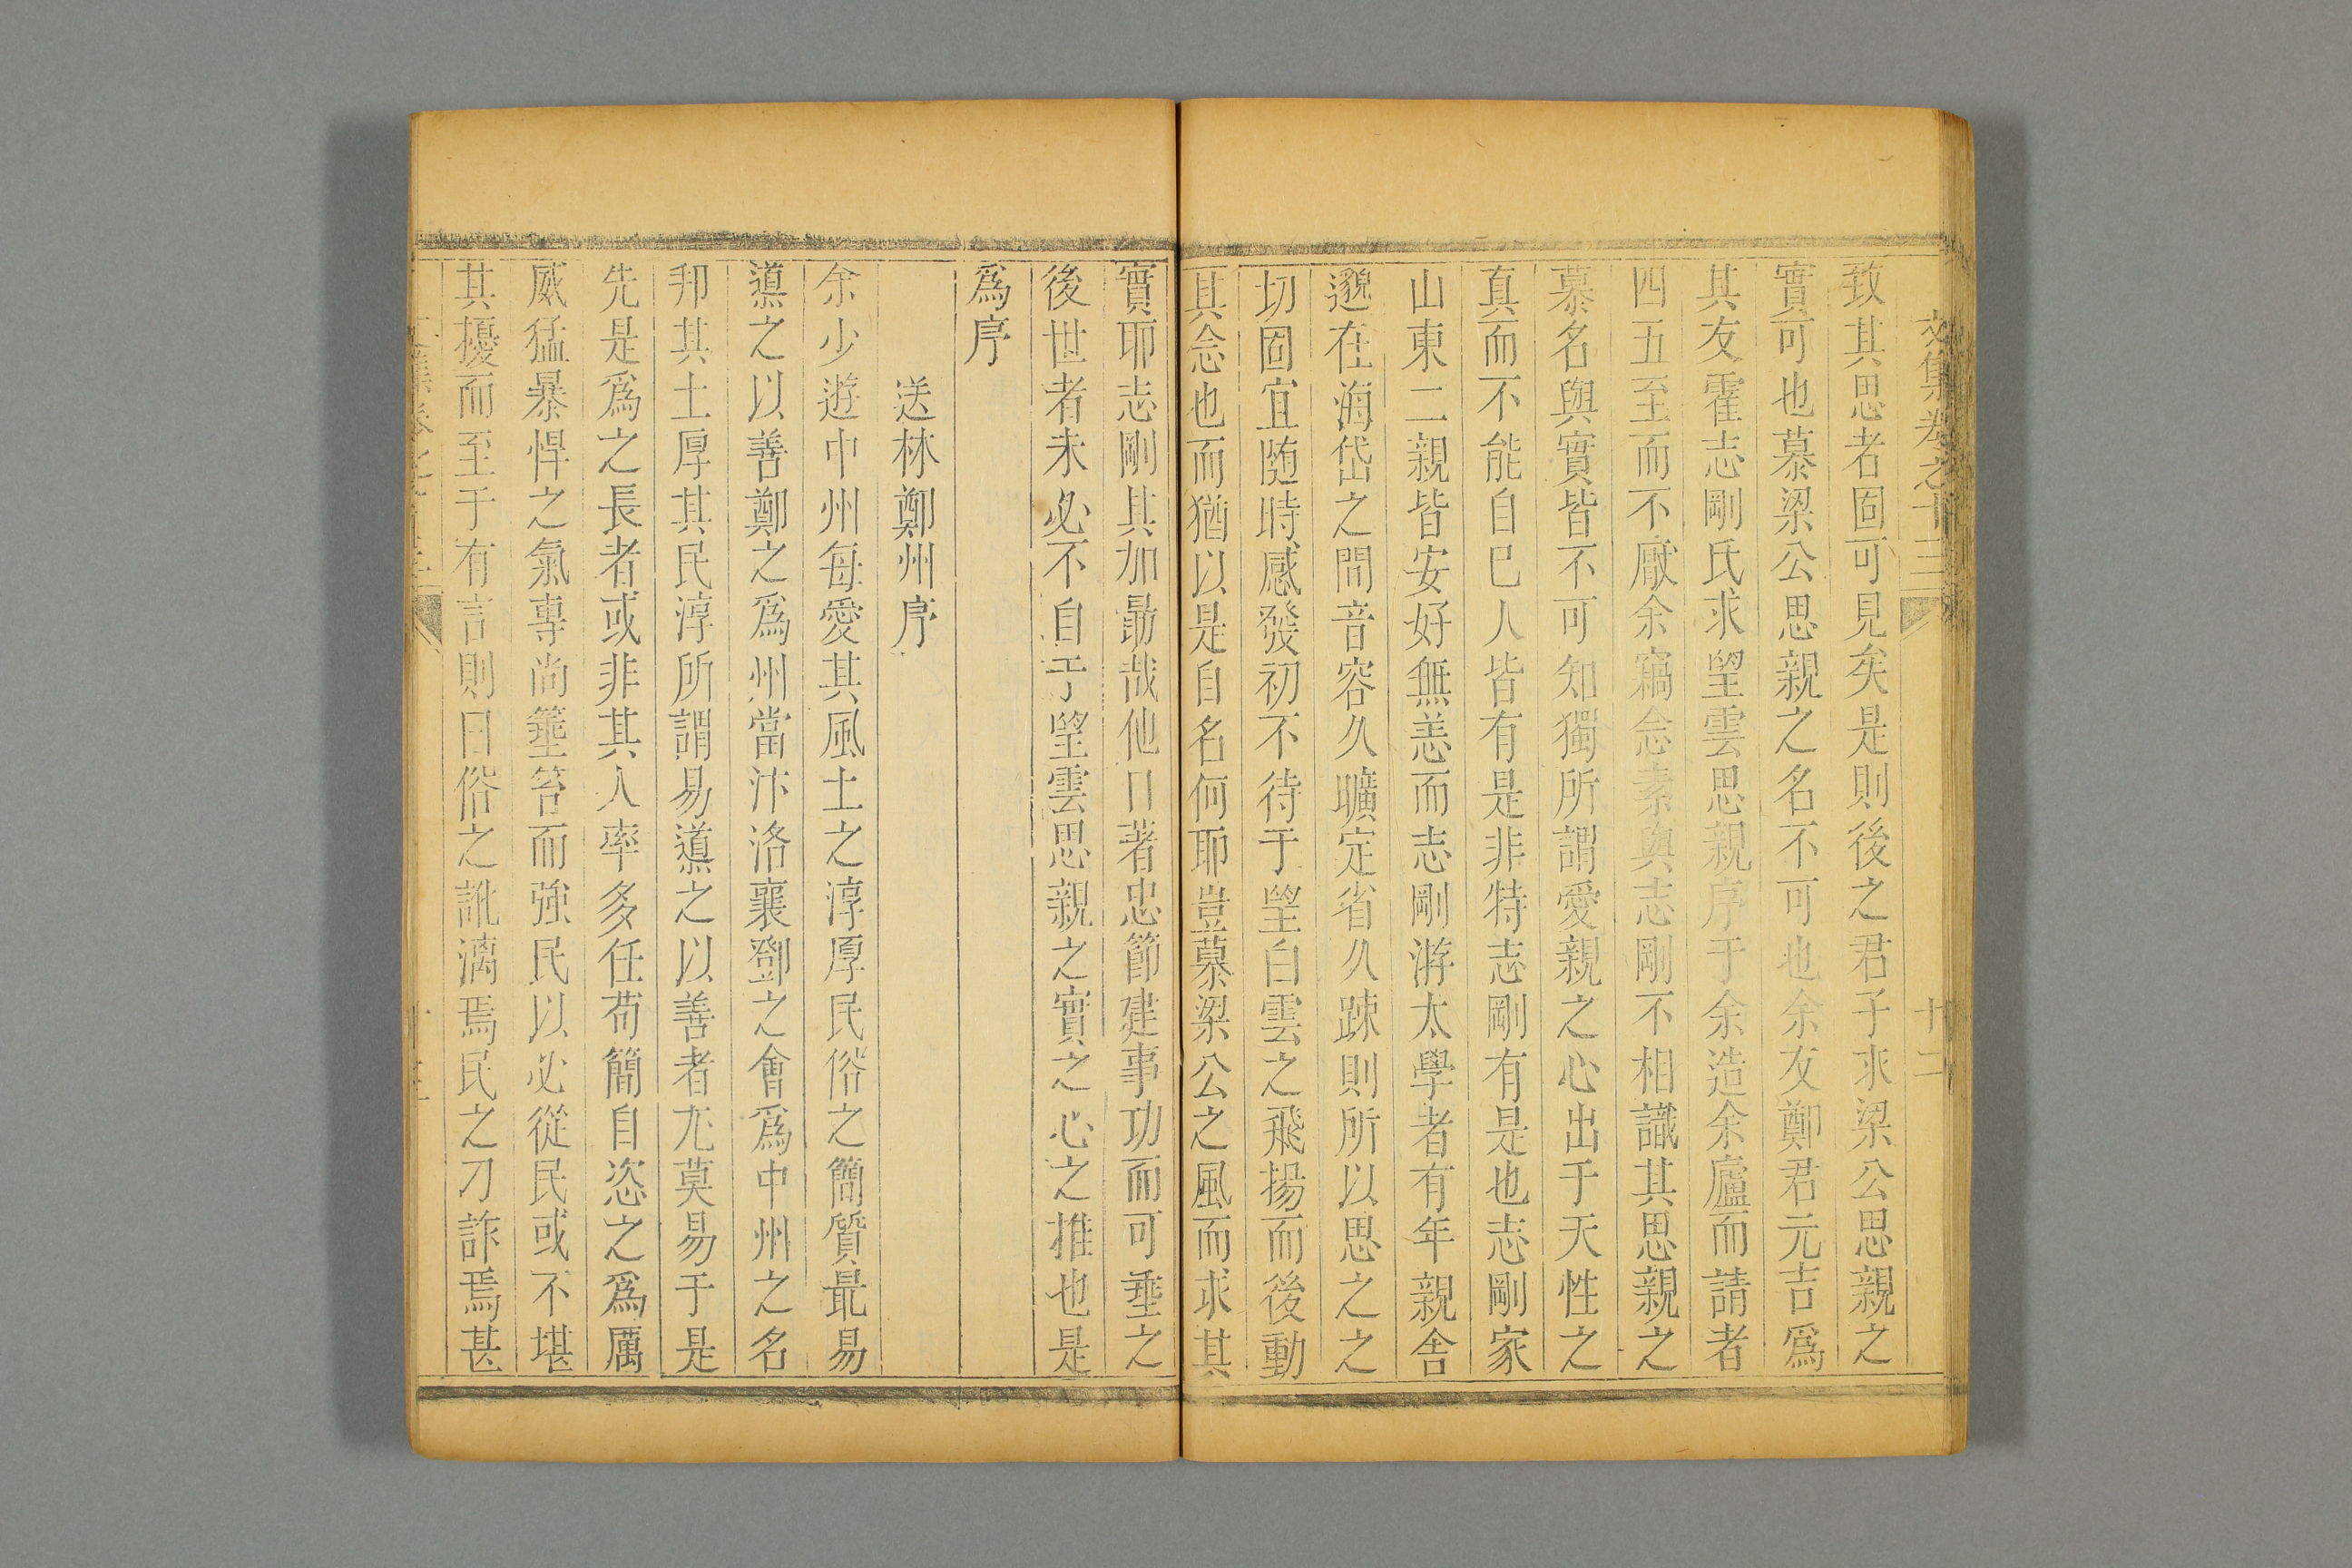 文集卷之十三
十二
致其思者固可見矣是則後之君子求梁公思親之
實可也慕梁公思親之名不可也余友鄭君元吉爲
其友霍志剛氏求望雲思親序于余造余廬而請者
四五至而不厭余竊念素與志剛不相識其思親之
慕名與實皆不可知獨所謂愛親之心出于天性之
真而不能自已人皆有是非特志剛有是也志剛家
山東二親皆安好無恙而志剛游太學者有年親舍
邈在海岱之間音容久曠定省久踈則所以思之之
切固宜随時感發初不待于望白雲之飛揚而後動
其念也而猶以是自名何耶豈慕梁公之風而求其
實耶志剛其加勗哉他日著忠節建事功而可埀之
後世者未必不自于望雲思親之實之心之推也是
爲序
送林鄭州序
余少遊中州每愛其風土之淳厚民俗之簡質最易
導之以善鄭之爲州當汴洛襄鄧之會爲中州之名
邦其土厚其民淳所謂易導之以善者尤莫易于是
先是爲之長者或非其人率多任苟簡自恣之爲厲
威猛暴悍之氣專尚箠笞而強民以必從民或不堪
其擾而至于有言則曰俗之訛漓焉民之刁詐焉甚